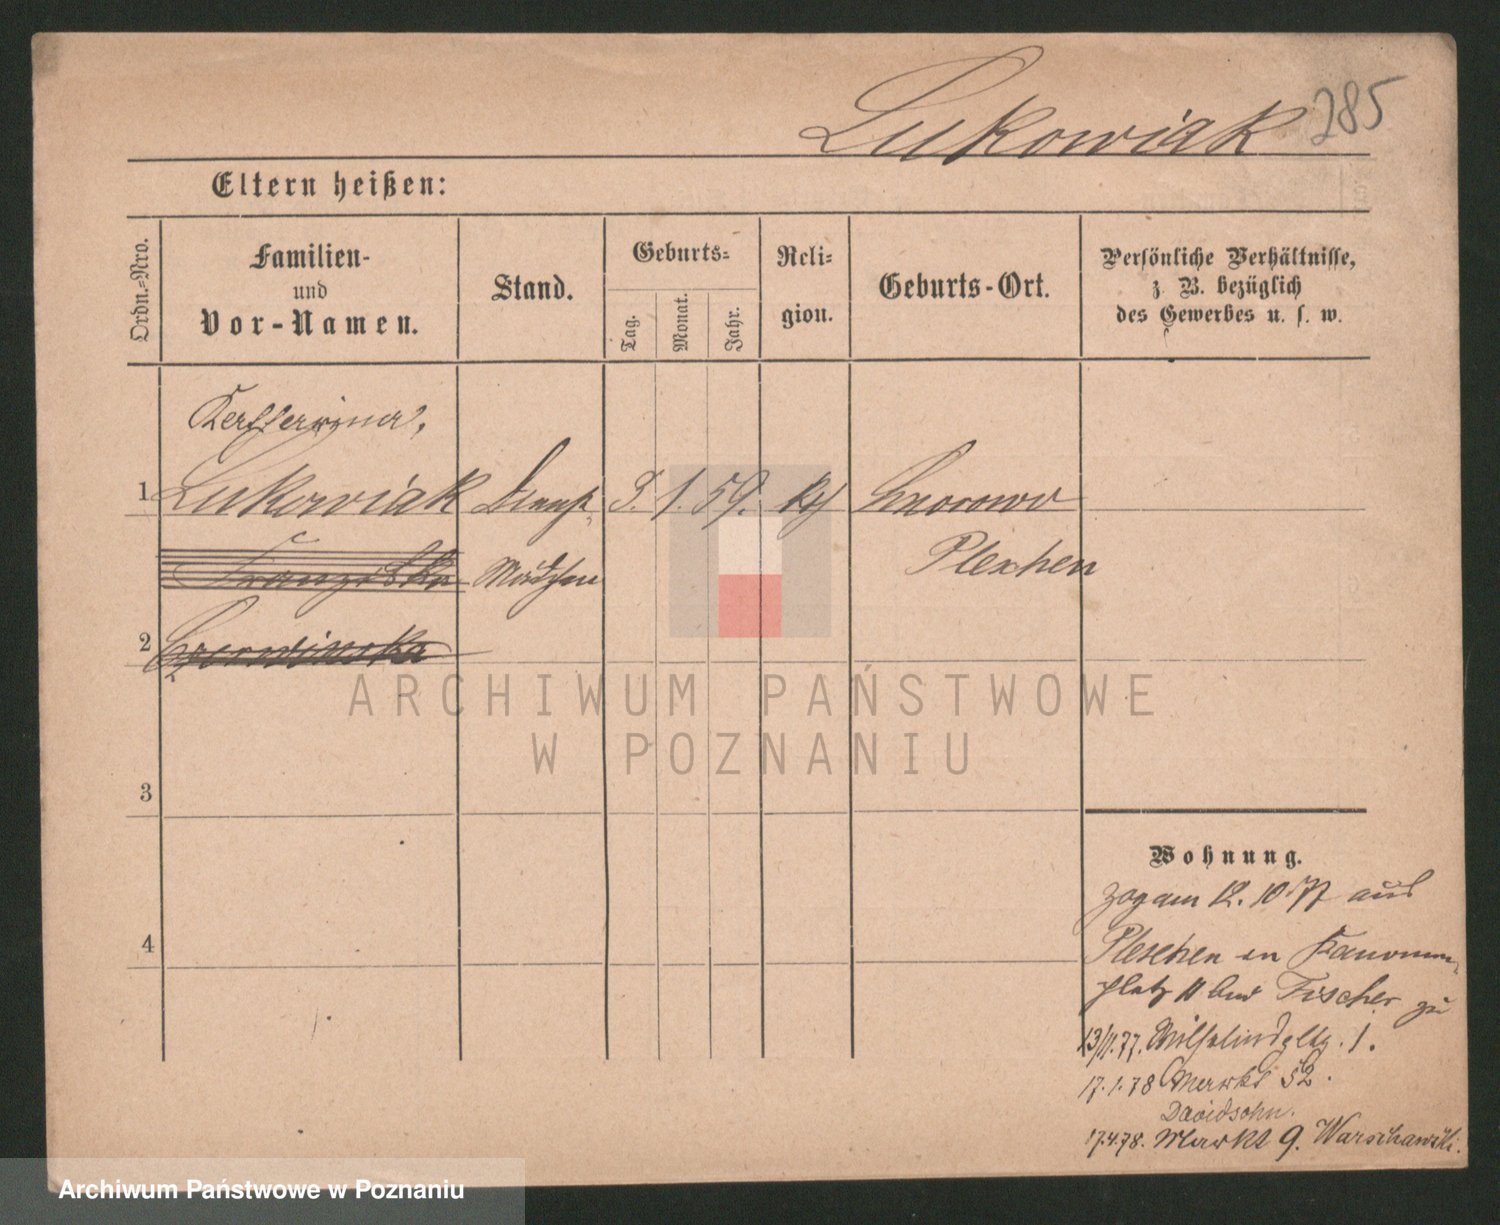 Lukowiak 285
Eltern heißen:
Ordn.-Nro.
Familien-
und
Vor-Namen.
Stand.
Geburts-
Tag.
Monat.
Jahr.
Reli-
gion.
Geburts-Ort.
Persönliche Verhältnisse,
z. B. bezüglich
des Gewerbes u. s. w.
1
Lukowiak Dienst 1. 59.
Franziska Mädchen
2
3
4
Wohnung.
zog am 12. 10 77 aus
Pleschen
platz 11 bei Fischer zu
13/11.77. Wilhelmspltz. 1.
17.1.78 Markt 52.
Davidsohn.
17.4.78. Markt 9. Warschawski.
ARCHIWUM PAŃSTWOWE
W POZNANIU
Archiwum Państwowe w Poznaniu